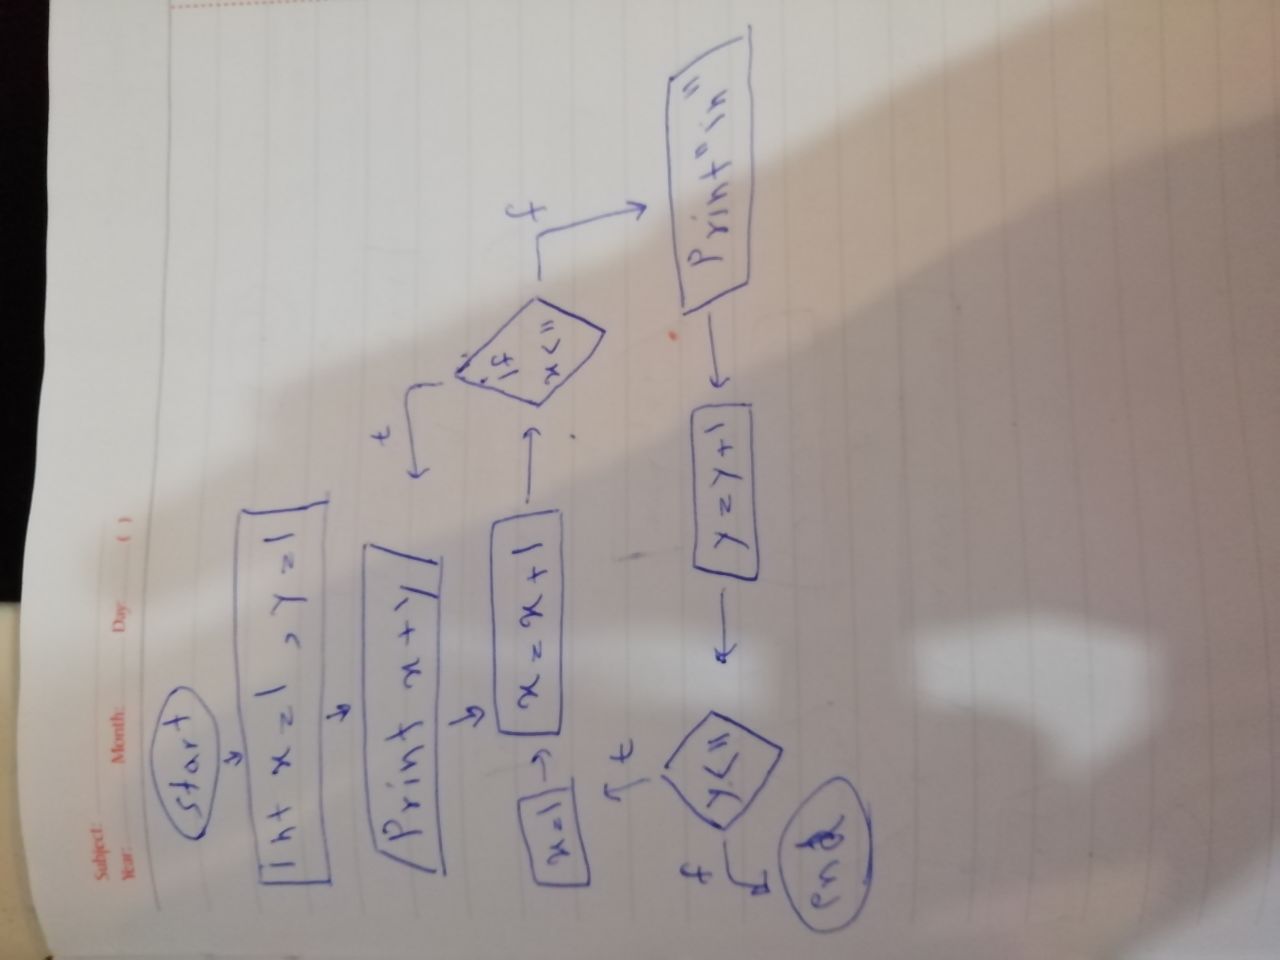 Subject:
Year: Month: Day: ( )
start
int x=1 , y=1
Print x+y
t
x=1
x=x+1
if
x<11
f
Print"in"
"
y=y+1
t
y<11
f
end